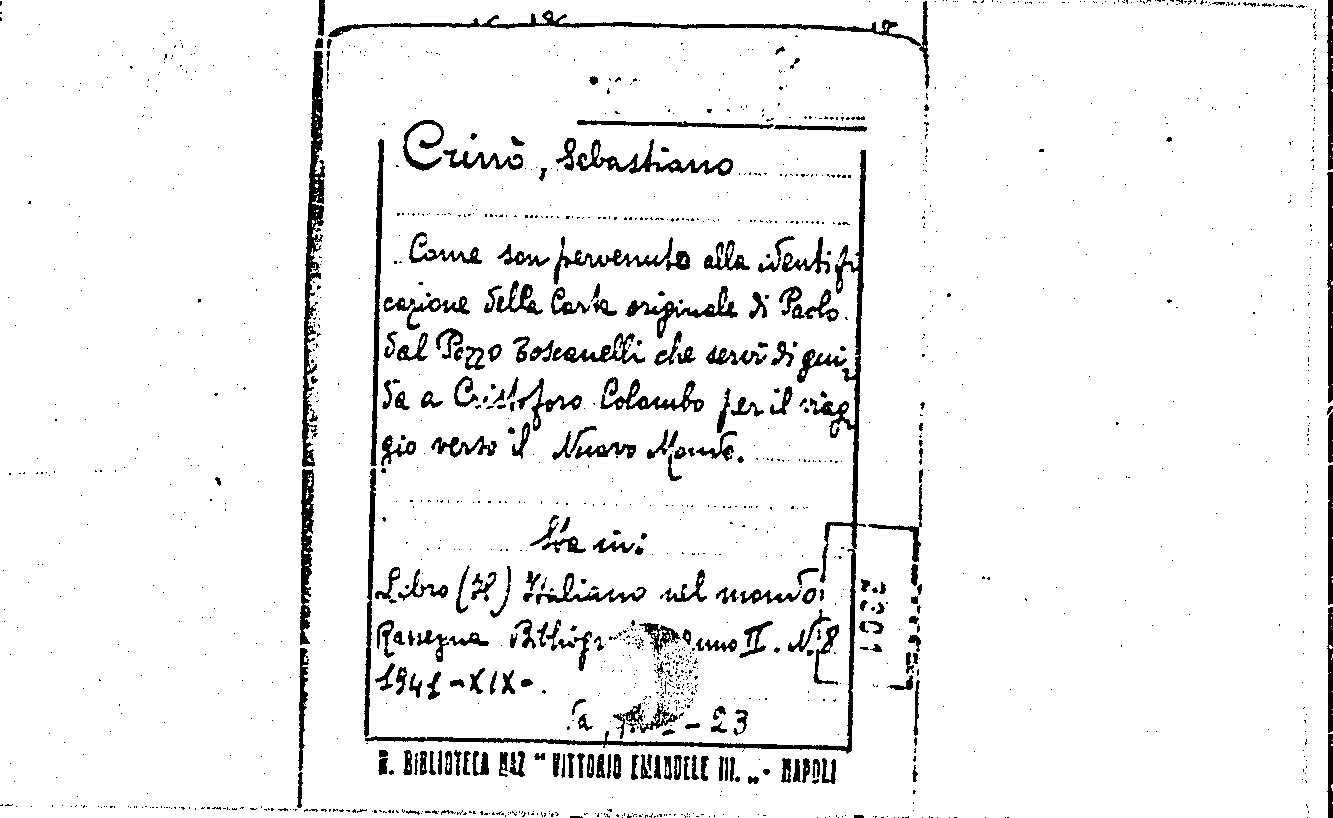 Crinò, Sebastiano
Come son pervenuto alla identifi
cazione della Carta originale di Paolo
dal Pozzo Toscanelli che servì di gui-
da a Cristoforo Colombo per il viag-
gio verso il Nuovo Mondo.
Sta in:
Libro (Il) Italiano nel mondo
Rassegna Anno II. N. 8
1941-XIX-.
- 23
R. BIBLIOTECA NAZ "VITTORIO EMANUELE III." - NAPOLI